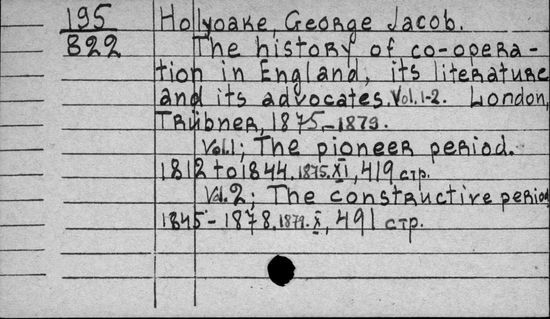 195
822
Holyoake, George Jacob.
The history of co-opera-
tion in England, its literature
and its advocates. Vol. 1-2. London,
Trübner, 1875-1879.
Vol. 1; The pioneer period.
1812 to 1844. 1875. XI, 419 стр.
Vol. 2; The constructive period
1845-1878. 1879. X, 491 стр.